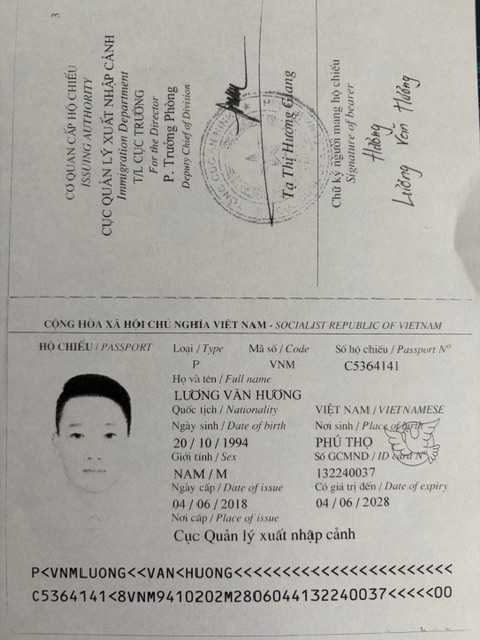 3
CƠ QUAN CẤP HỘ CHIẾU
ISSUING AUTHORITY
CỤC QUẢN LÝ XUẤT NHẬP CẢNH
Immigration Department
T/L CỤC TRƯỞNG
For the Director
P. Trưởng Phòng
Deputy Chief of Division
Tạ Thị Hương Giang
Chữ ký người mang hộ chiếu
Signature of bearer
Hương
Lương Văn Hương
CỘNG HÒA XÃ HỘI CHỦ NGHĨA VIỆT NAM - SOCIALIST REPUBLIC OF VIETNAM
HỘ CHIẾU / PASSPORT Loại / Type Mã số / Code Số hộ chiếu / Passport Nº
P VNM C5364141
Họ và tên / Full name
LƯƠNG VĂN HƯƠNG
Quốc tịch / Nationality VIỆT NAM / VIETNAMESE
Ngày sinh / Date of birth Nơi sinh / Place of birth
20 / 10 / 1994 PHÚ THỌ
Giới tính / Sex Số GCMND / ID card Nº
NAM / M 132240037
Ngày cấp / Date of issue Có giá trị đến / Date of expiry
04 / 06 / 2018 04 / 06 / 2028
Nơi cấp / Place of issue
Cục Quản lý xuất nhập cảnh
P<VNMLUONG<<VAN<HUONG<<<<<<<<<<<<<<<<<<<<<<<
C5364141<8VNM9410202M2806044132240037<<<<<00